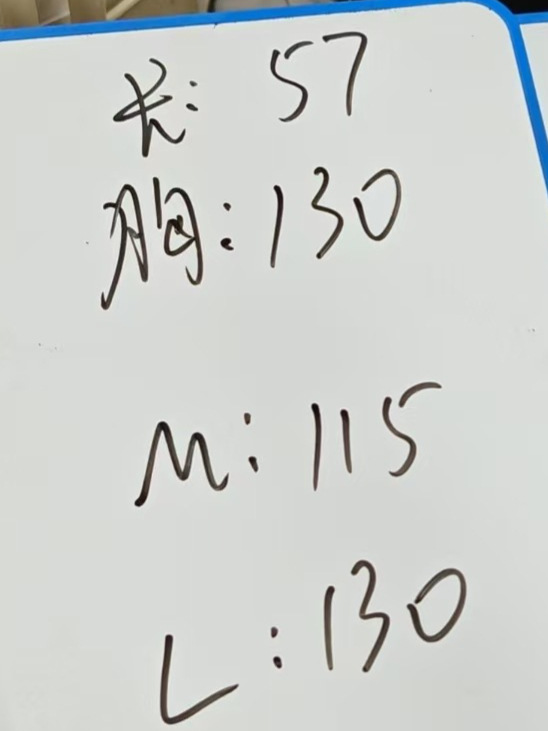 长: 57
胸: 130
M: 115
L: 130